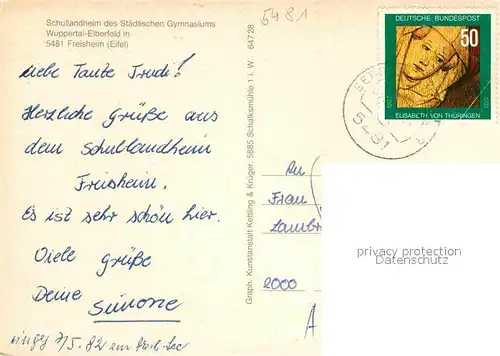 Schullandheim des Städtischen Gymnasiums
Wuppertal-Elberfeld in
5481 Freisheim (Eifel)
5481
Liebe Tante Trudi!
Herzliche Grüße aus
dem Schullandheim
Freisheim.
Es ist sehr schön hier.
Viele Grüße
Deine
Simone
Graph. Kunstanstalt Kettling & Krüger, 5885 Schalksmühle 1 i. W. 647 28
DEUTSCHE BUNDESPOST
50
ELISABETH VON THÜRINGEN
5481
An
Frau
2000
privacy protection
Datenschutz